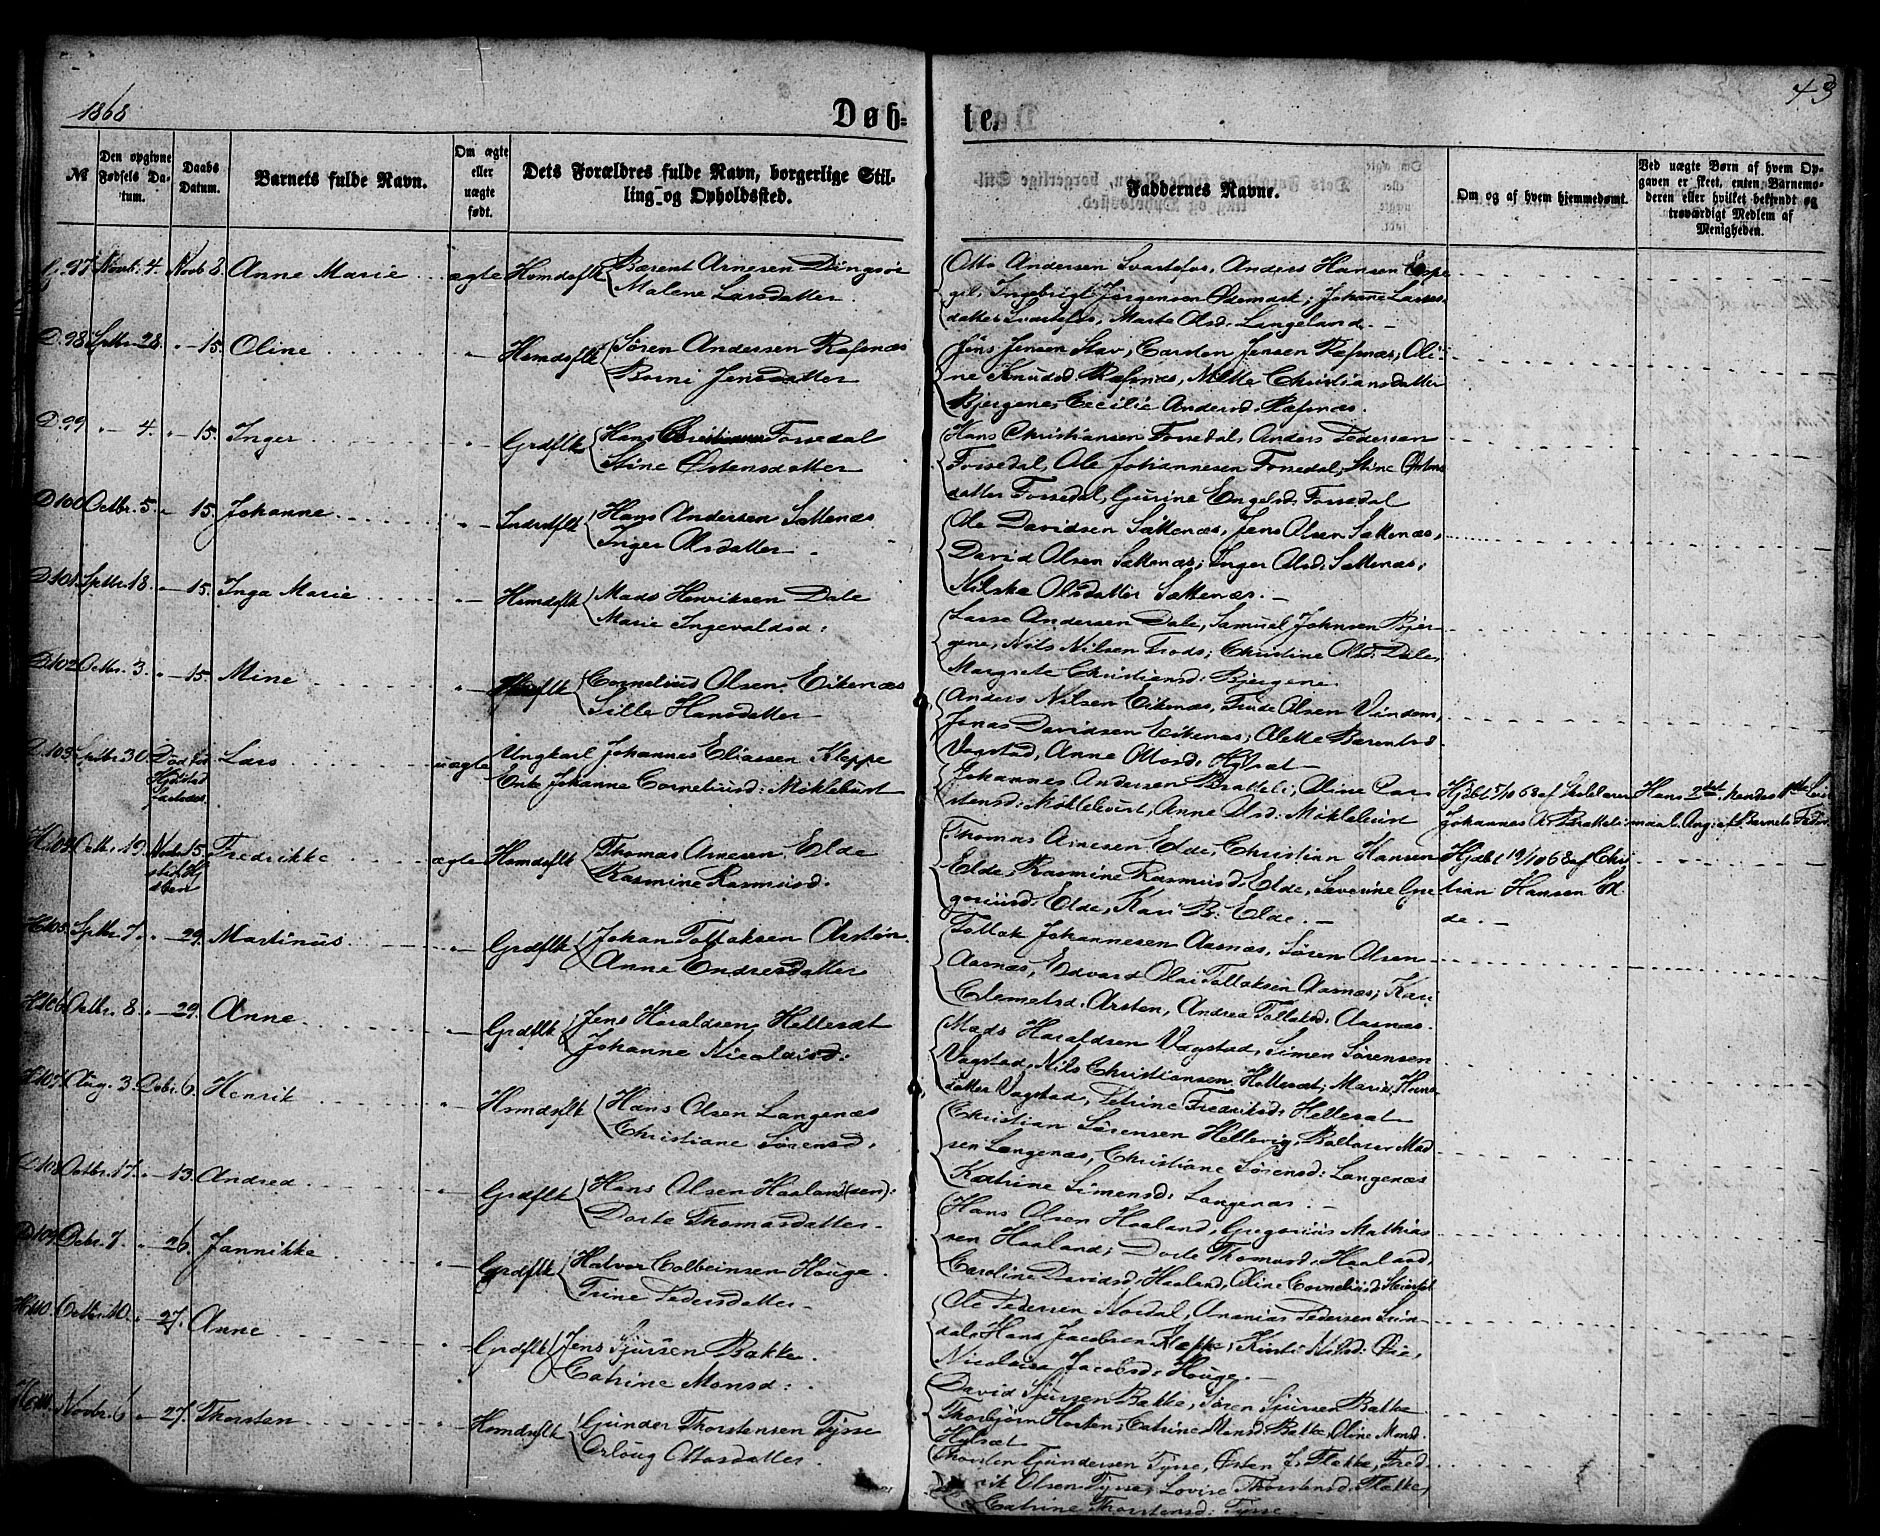 1868
43
Døb=
te.
№
Den opgivne Fødsels Datum.
Daabs Datum.
Barnets fulde Navn.
Om ægte eller uægte født.
Dets Forældres fulde Navn, borgerlige Stilling og Opholdssted.
Faddernes Navne.
Om og af hvem hjemmedøbt.
Ved uægte Børn af hvem Opgaven er skeet, enten Barnemoderen eller hvilket bekjendt og troværdigt Medlem af Menigheden.
97 Novb. 4. Novb 8. Anne Marie ægte Hsmdsflk Bærent Arnesen Dingsør
Malene Larsdatter.
Otto Andersen Svartefos, Anders Hansen Espe
gil, Ingebrigt Jørgensen Ødemark, Johanne Lars
datter Svartefos, Marte Olsd. Langeland. -
D.98 Sptbr. 28. " - 15. Oline " Hsmdsflk Søren Andersen Rafsnæs
Berni Jensdatter
Jens Jensen Stav, Carsten Jensen Ræfsnæs, Oli
ne Knudsd. Ræfsnæs, Nille Christiansdatter
Bjergene, Cecilie Andersd. Ræfsnæs.
D.99 " - 4. " - 15. Inger " Grdflk Hans Christiansen Fossedal
Stine Østensdatter
Hans Christiansen Fossedal, Anders Pedersen
Fossedal, Ole Johannesen Fossedal, Stine Østens
datter Fossedal, Gurine Engelsd. Fossedal
D100 Octbr. 5. " - 15. Johanne " Indrstflk Hans Andersen Sættenæs
Inger Olsdatter -
Ole Davidsen Sættenæs, Jens Olsen Sættenæs,
David Olsen Sættenæs, Inger Olsd. Sættenæs,
Nilska Olsdatter Sættenæs. -
D101 Sptbr. 18. " - 15. Inga Marie " Hsmdsflk Mads Henriksen Dale
Marie Ingevaldsd:
Lasse Andersen Dale, Samuel Johnsen Bjer-
gene, Nils Nilsen Trods, Christine Olsd. Dale,
Margrete Christiansd. Bjergene.
D102 Octbr. 3. " - 15. Mine " Cornelius Olsen Eikenæs
Sille Hansdatter
Anders Nilsen Eikenæs, Olsen Vindem,
Jonas Davidsen Eikenæs, Olette Bærentsd.
Vagstad, Anne Ottosd. Hylsæt -
D103 Sptbr. 30. Død Lars uægte Ungkarl Johannes Eliassen Kleppe
Enke Johanne Corneliusd: Mikleburt
Johannes Andersen Brakteli, Oline Car-
stensd: Mikleburt, Anne Olsd: Mikleburt
Hjdbt 5/10 68 af Skolelærer
Johannes A. Brakteli
Hans 2det, hendes 1ste Leier
maal. Ang. af Barnets Fader
H104 Octbr. 19. Novbr. 15. Fredrikke ægte Hsmdsflk Thomas Arnesen Elde
Rasmine Rasmusd.
Thomas Arnesen Elde, Christian Hansen
Elde, Rasmine Rasmusd: Elde, Severine Gre
goriusd. Elde, Kari B. Elde. -
Hjdbt 19/10 68 af Chri
stian Hansen El
de. -
H105 Sptbr. 7. " - 29. Martinus " Grdflk Johan Tollaksen Arsten
Anne Endresdatter
Tollak Johannesen Aasnæs, Søren Olsen
Aasnæs, Edvard Olai Tollaksen Aasnæs, Kari
Clemetsd. Arsten, Andrea Tollaksd. Aasnæs.
H106 Octbr. 8. " - 29. Anne " Grdflk Jens Haraldsen Hellesæt
Johanne Nicolaisd:
Mads Haraldsen Vagstad, Simen Sørensen
Vagstad, Nils Christiansen Hellesæt, Marie Hans
datter Vagstad, Petrine Fredriksd: Hellesæt
H107 Aug. 3. Decbr. 6. Henrik " Hsmdsflk Hans Olsen Langenæs
Christiane Sørensd.
Christian Sørensen Hellevig, Baltaser Mad
sen Langenæs, Christiane Sørensd: Langenæs
Katrine Simensd: Langenæs. -
D108 Octbr. 17. " - 13. Andrea " Grdflk Hans Olsen Haaland (sen):
Dorte Thomasdatter.
Hans Olsen Haaland, Gregorius Mathias
sen Haaland, Dorte Thomasd. Haaland,
Caroline Davidsd. Haaland, Oline Corneliusd
D109 Decbr. 7. " - 26. Jannikke " Grdflk Halvor Colbeinsen Houge
Trine Pedersdatter
Ole Pedersen Nordal, Ananias Pedersen Sun
dal, Hans Jacobsen Kleppe, Kirsti Nilsd. Øie,
Nicolaisa Jacobsd. Houge. -
H110 Octbr. 10. " - 27. Anne " Grdflk Jens Sjursen Bakke
Catrine Monsd:
David Sjursen Bakke, Søren Sjursen Bakke
Thorbjørn Horten, Catrine Monsd. Bakke, Oline Monsd.
Hylsæt -
H111 Novbr. 6. " - 27. Thorsten " Hsmdsflk Gunder Thorstensen Tysse
Orloug Ottosdatter
Thorsten Gundersen Tysse, Østen J. Flække, Fred
rik Olsen Tysse, Lovise Thorstensd. Flække,
Catrine Thorstensd: Tysse. -